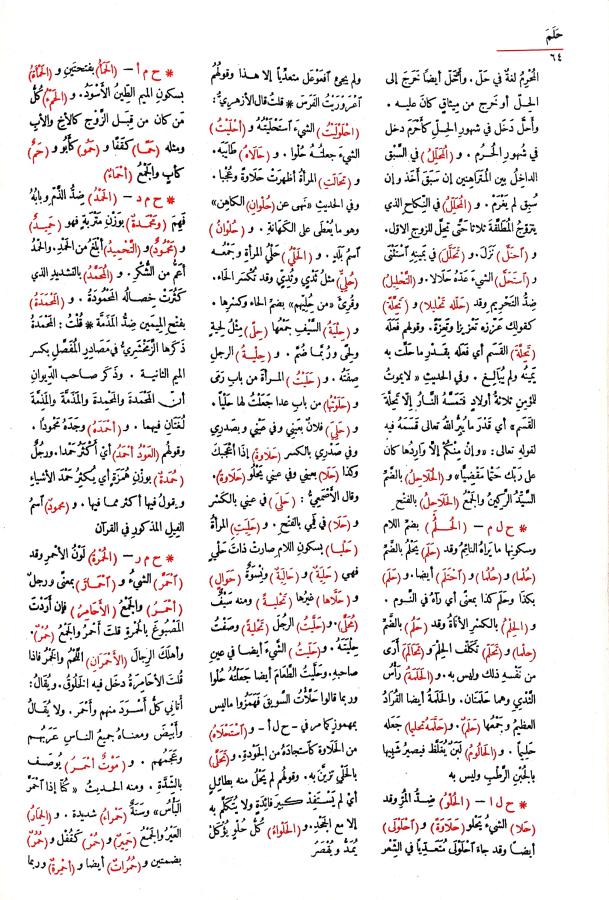 حَلَمَ
٦٤
المُحْرِمُ لغةٌ في حَلّ. وأَحَلَّ أيضًا خَرَجَ إلى
الحِلّ أو خَرج من مِيثاقٍ كانَ عليه.
وأَحَلَّ دَخَل في شهورِ الحِلّ كأَحْرَمَ دخل
في شهورِ الحُرُم. و(المُحَلِّلُ) في السَّبْق
الداخلُ بين المُتَراهِنين إن سَبَق أَخَذ وإن
سُبِق لم يَغْرَمْ. و(المُحَلِّلُ) في النِّكاح الذي
يتزوّجُ المُطَلَّقةَ ثلاثا حتّى تَحِلَّ للزوج الأول.
و(احْتَلَّ) نَزَل. و(تَحَلَّلَ) في يَمِينِه اسْتَثْنَى
و(اسْتَحَلَّ) الشيءَ عَدَّه حَلالا. و(التَّحْلِيلُ)
ضِدُّ التَّحْرِيمِ وقد (حَلَّله تَحْلِيلا) و(تَحِلَّةً)
كقولك عَزَّزه تَعْزِيزا وتَعِزَّةً. وقولهم فَعَلَه
(تَحِلَّةَ) القَسَم أي فعَلَه بقَدْرِ ما حَلَّت به
يَمِينُه ولم يُبالِغْ. وفي الحديث «لا يموتُ
للمؤمِنِ ثلاثةُ أولادٍ فتَمَسُّه النارُ إلا تَحِلَّةَ
القَسَم» أي قَدْرَ ما يُبِرُّ اللهُ تعالى قَسَمَه فيه
لقوله تعالى: «وإن مِنْكُمْ إلّا وارِدُها كان
على رَبّك حَتْمًا مَقْضِيًّا» و(الحُلاحِلُ) بالضَّمّ
السيّدُ الرَّكينُ والجَمْعُ (الحَلاحِلُ) بالفتح
* ح ل م – (الحُلُمُ) بضم اللام
وسكونِها ما يَراهُ النائِمُ وقد (حَلَم) يَحْلُم بالضَّمّ
(حُلْمًا) و(حُلُمًا) و(احْتَلَم) أيضا. و(حَلَم)
بكذا وحَلَم كذا بمعنى أي رآه في النوم.
و(الحِلْمُ) بالكسر الأناةُ وقد (حَلُمَ) بالضَّمّ
(حِلْما) و(تَحَلَّمَ) تَكَلَّف الحِلْمَ و(تَحالَمَ) أَرَى
من نَفْسِه ذلك وليس به. و(الحَلَمَةُ) رَأْسُ
الثَّدْي وهما حَلَمَتان. والحَلَمَةُ أيضا القُرادُ
العظيمُ وجمعُها (حَلَمٌ). و(حَلَّمَه تَحْلِيما) جَعَلَه
حَلِيما. و(الحالُومُ) لَبَنٌ يَغْلُظُ فيصيرُ شَبِيها
بالجُبْنِ الرَّطْبِ وليس به
* ح ل ا – (الحُلْوُ) ضِدُّ المُرِّ وقد
(حَلا) الشيءُ يَحْلُو (حَلاوَةً) و(احْلَوْلَى)
أيضا وقد جاء احْلَوْلَى مُتَعَدِّيا في الشِّعْر
ولم يجئ افْعَوْعَل متعدّيا إلا هذا وقولُهُم
اعْرَوْرَيْتُ الفَرَسَ * قلتُ قال الأزهريُّ:
(احْلَوْلَيْتُ) الشيءَ اسْتَحْلَيْتُه و(أَحْلَيْتُ)
الشيءَ جعلتُه حُلْوا. و(حَالاهُ) طايَبَه.
و(تَحالَتِ) المرأةُ أظهرَتْ حَلاوةً وعُجْبا.
وفي الحديثِ «نَهى عن (حُلْوانِ) الكاهِن»
وهو ما يُعْطَى على الكَهانَةِ. و(حُلْوانُ)
اسمُ بلدٍ. و(الحَلْيُ) حَلْيُ المرأةِ وجَمْعُه
(حُلِيٌّ) مثلُ ثَدْيٍ وثُدِيّ وقد تُكسَر الحاء.
وقُرِئَ «من حُلِيِّهِم» بضم الحاء وكسرها.
و(حِلْيَةُ) السَّيْفِ جَمْعُها (حِلًى) مِثلُ لِحْيَة
ولِحًى ورُبَّما ضُمَّ. و(حِلْيَةُ) الرجلِ
صِفَتُه. و(حَلَيْتُ) المرأةَ من باب رَمَى
و(حَلَوْتُها) من باب عدا جَعَلْتُ لها حَلْيًا.
و(حَلِيَ) فلانٌ بعَيني وفي عَيْني وبصَدري
وفي صَدْري بالكسر (حَلاوةً) إذا أعْجَبَكَ
وكذا (حَلا) بعيني وفي عيني يَحْلُو (حَلاوةً).
وقال الأَصْمَعِيُّ: (حَلِيَ) في عيني بالكَسْر
و(حَلا) في فَمِي بالفتح. و(حَلِيَتِ) المرأةُ
(حَلْيا) بسكون اللام صارت ذاتَ حَلْيٍ
فهي (حَلِيَةٌ) و(حالِيَةٌ) ونِسْوَةٌ (حَوالٍ)
و(حَلّاها) غيرُها (تَحْلِيةً) ومنه سَيْفٌ
(مُحَلًّى). و(حَلَّيْتُ) الرَّجُلَ (تَحْلِيةً) وصَفْتُ
حِلْيَتَه. و(حَلَّيْتُ) الشَّيءَ أيضا في عينِ
صاحبِه. وحَلَّيْتُ الطَّعامَ أيضا جعلتُه حُلْوا
وربما قالوا حَلَّأْتُ السويقَ فَهَمَزُوا ما ليس
بهموز كما مر في – ح ل أ – و(اسْتَحْلاهُ)
من الحَلاوَة كاسْتَجادَه من الجَوْدةِ. و(تَحَلَّى)
بالحَلْي تزيَّنَ به. وقولهم لم يَحْلُ منه بطائِلٍ
أي لم يَسْتَفِدْ كبيرَ فائِدَةٍ ولا يُتَكَلَّم به
إلا مع الجَحْدِ. و(الحَلْواءُ) كُلُّ حُلْوٍ يُؤكَلُ
يُمَدُّ ويُقْصَرُ
* ح م أ – (الحَمَأُ) بفتحتينِ و(الحَمْأَةُ)
بسكونِ الميم الطِّينُ الأَسْوَدُ. و(الحَمْءُ) كُلُّ
مَن كان من قِبَلِ الزَّوْجِ كالأَخِ والأَبِ
ومثله (حَمًا) كقَفًا و(حَمُو) كأَبُو و(حَمٌ)
كأَبٍ والجَمْعُ (أَحْماءٌ)
* ح م د – (الحَمْدُ) ضِدُّ الذَّمّ وبابُهُ
فَهِمَ و(مَحْمَدةً) بوَزْنِ مَتْرَبةٍ فهو (حَمِيدٌ)
و(مَحْمُودٌ) و(التَّحْمِيدُ) أبلَغُ من الحَمْدِ. والحَمْدُ
أعَمُّ من الشُّكْر. و(المُحَمَّدُ) بالتشديد الذي
كَثُرَتْ خِصالُه المَحْمُودَة. و(المَحْمَدَةُ)
بفتح المِيمَين ضِدُّ المَذَمَّة * قُلْتُ: المَحْمَدة
ذَكَرها الزمخشريُّ في مَصادِرِ المُفَصَّلِ بكسر
الميم الثانية. وذَكَر صاحبُ الدِّيوان
أن المَحْمَدةَ والمَحْمِدةَ والمَذَمَّةَ والمَذِمَّةَ
لُغَتان فيهما. و(أَحْمَدَهُ) وجَدَه مَحْمُودا.
وقولهم (العَوْدُ أَحْمَدُ) أي أكثرُ حَمْدا. ورجُلٌ
(حُمَدَةٌ) بوزنِ هُمَزَةٍ أي يُكثِرُ حَمْدَ الأشياءِ
ويقولُ فيها أكثرَ مما فيها. و(محمودٌ) اسمُ
الفِيل المذكورِ في القرآن
* ح م ر – (الحُمْرَةُ) لَوْنُ الأَحْمَرِ وقد
(احْمَرَّ) الشيءُ و(احْمارَّ) بمعنًى ورجلٌ
(أحْمَرُ) والجَمْعُ (الأَحامِرُ) فإن أرَدْتَ
المَصْبُوغَ بالحُمْرةِ قلتَ أحْمَرُ والجَمْعُ (حُمْرٌ).
وأهلَكَ الرجالَ (الأَحْمَرانِ) اللَّحْمُ والخَمْرُ فإذا
قُلْتَ الأَحامِرَةُ دخَل فيه الخَلُوقُ. ويُقالُ:
أتاني كلُّ أَسْوَدَ منهم وأحْمَرَ. ولا يُقالُ
وأَبْيَضَ ومعناهُ جميعُ الناس عَرَبُهُم
وعَجَمُهم. و(مَوْتٌ أَحْمَرُ) يُوصَف
بالشِّدَّةِ. ومنه الحديثُ «كُنّا إذا احْمَرَّ
البَأْسُ» وسَنَةٌ (حَمْراءُ) شديدة. و(الحِمارُ)
العَيْرُ والجَمْعُ (حَمِيرٌ) و(حُمْرٌ) كقُفْلٍ و(حُمُرٌ)
بضمتين و(حُمُراتٌ) أيضا و(أَحْمِرَةٌ) وربما